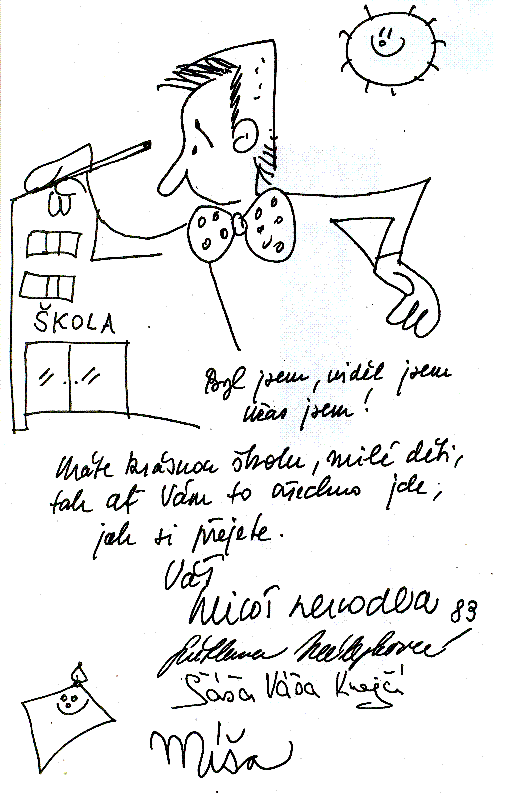 ŠKOLA
Byl jsem, viděl jsem
užas jsem!
Máte krásnou školu, milé děti,
tak ať Vám to všechno jde,
jak si přejete.
Váš
Miloš Nesvadba 83
Sáša Váša Krejčí
Míša